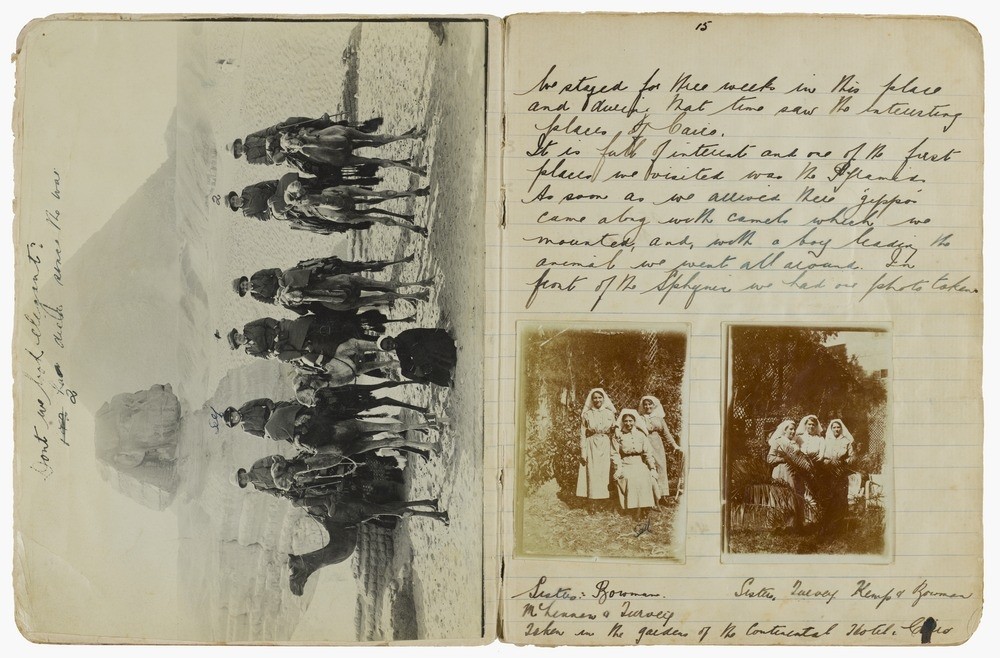 Dont we look elegant?
2 have died since the war
2
self
15
We stayed for three weeks in this place
and during that time saw the interesting
places of Cairo.
It is full of interest and one of the first
places we visited was the Pyramids
As soon as we arrived there 'gippos'
came along with camels which we
mounted, and, with a boy leading the
animal we went all around. In
front of the Sphynix we had our photo taken
self
Sisters: Bowman.
McLennan & Turvey
Sisters, Turvey Kemp & Bowman
Taken in the gardens of the Continental Hotel: Cairo